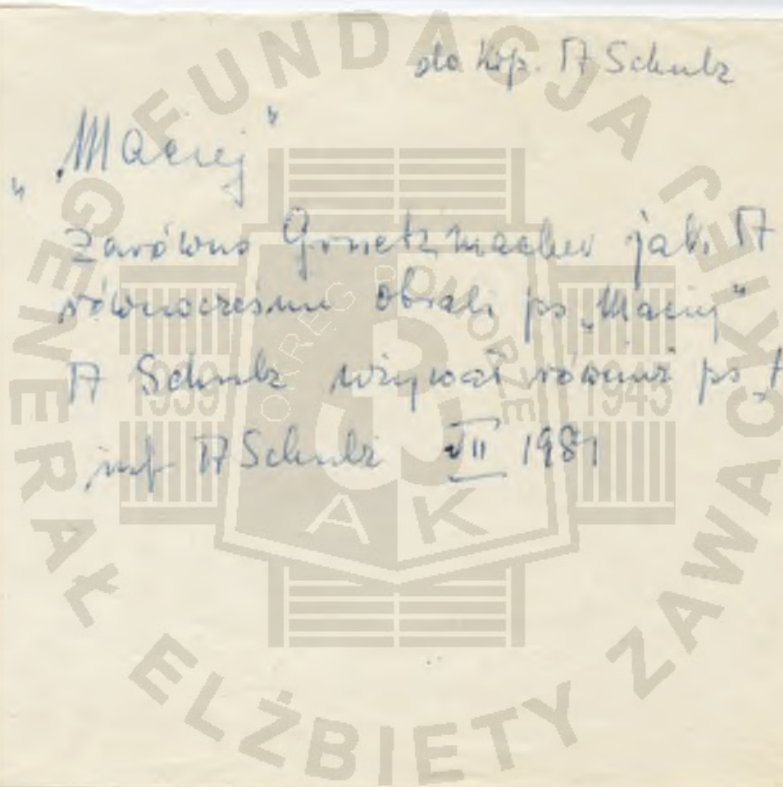 do kop. A Schulz
„Maciej"
Zarówno Gruetzmacher jak i A
równocześnie obrali ps „Maciej"
A Schulz używał również ps „
inf A Schulz VII 1981
FUNDACJA
GENERAŁ ELŻBIETY ZAWACKIEJ
OKRĘG POMORZE
1939 1945
AK